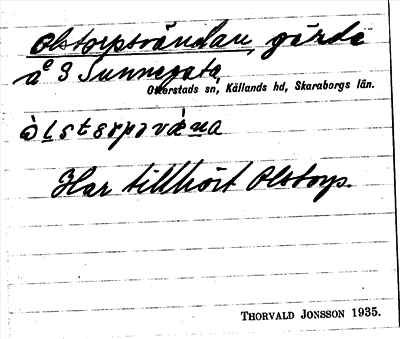 Olstorpsvändan, gärde
å S Sunnegata,
Otterstads sn, Kållands hd, Skaraborgs län.
Har tillhört Olstorp.
THORVALD JONSSON 1935.